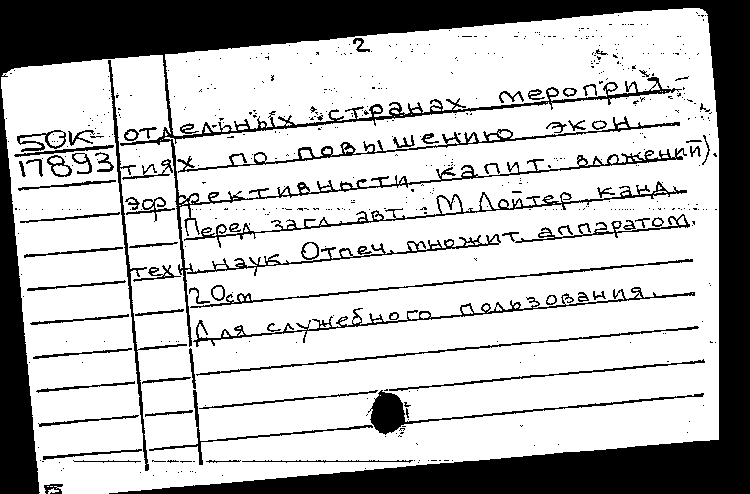 2
50К отдельных странах мероприя-
17893 тиях по повышению экон.
эффективности капит. вложений).
Перед загл. авт.: М. Лойтер, канд.
техн. наук. Отпеч. множит. аппаратом.
20см
Для служебного пользования.